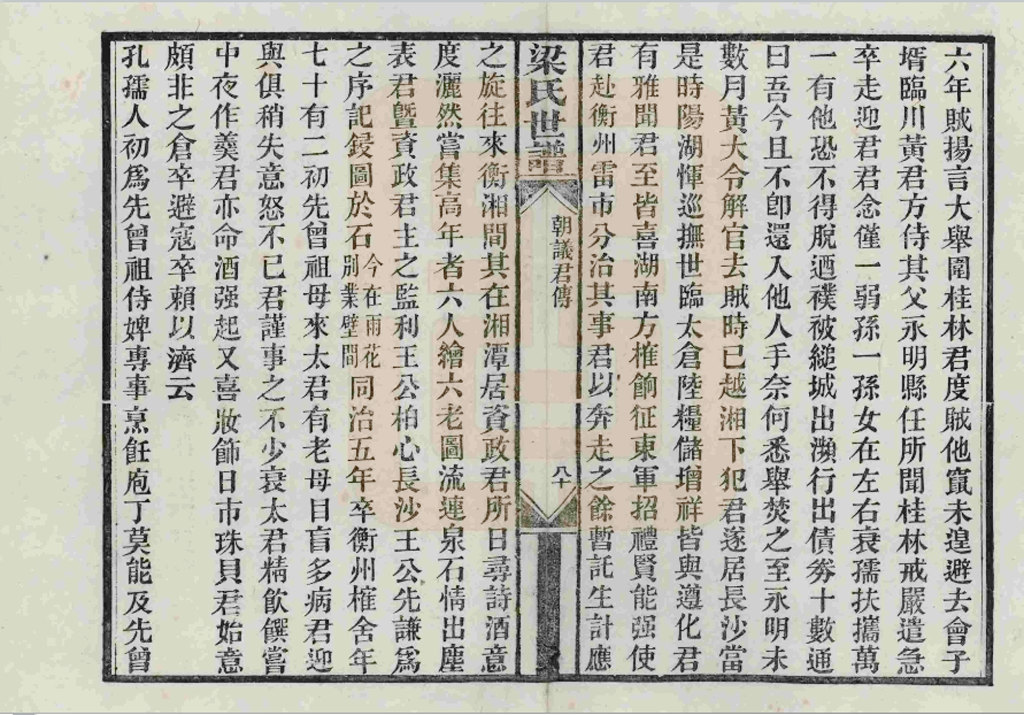 六年賊揚言大舉圍桂林君度賊他竄未遑避去會子
壻臨川黃君方侍其父永明縣任所聞桂林戒嚴遣急
卒走迎君君念僅一弱孫一孫女在左右衰孺扶攜萬
一有他恐不得脫迺襆被縋城出瀕行出債劵十數通
曰吾今且不卽還入他人手奈何悉舉焚之至永明未
數月黃大令解官去賊時已越湘下犯君遂居長沙當
是時陽湖惲巡撫世臨太倉陸糧儲增祥皆與遵化君
有雅聞君至皆喜湖南方榷餉征東軍招禮賢能强使
君赴衡州雷市分治其事君以奔走之餘暫託生計應
梁氏世譜
朝議君傳
八十
之旋往來衡湘間其在湘潭居資政君所日尋詩酒意
度灑然嘗集高年者六人繪六老圖流連泉石情出塵
表君曁資政君主之監利王公柏心長沙王公先謙爲
之序記鋟圖於石今在雨花別業壁間同治五年卒衡州榷舍年
七十有二初先曾祖母來太君有老母目盲多病君迎
與俱稍失意怒不已君謹事之不少衰太君精飲饌嘗
中夜作羹君亦命酒强起又喜妝節日市珠貝君始意
頗非之倉卒避寇卒賴以濟云
孔孺人初爲先曾祖侍婢專事烹飪庖丁莫能及先曾